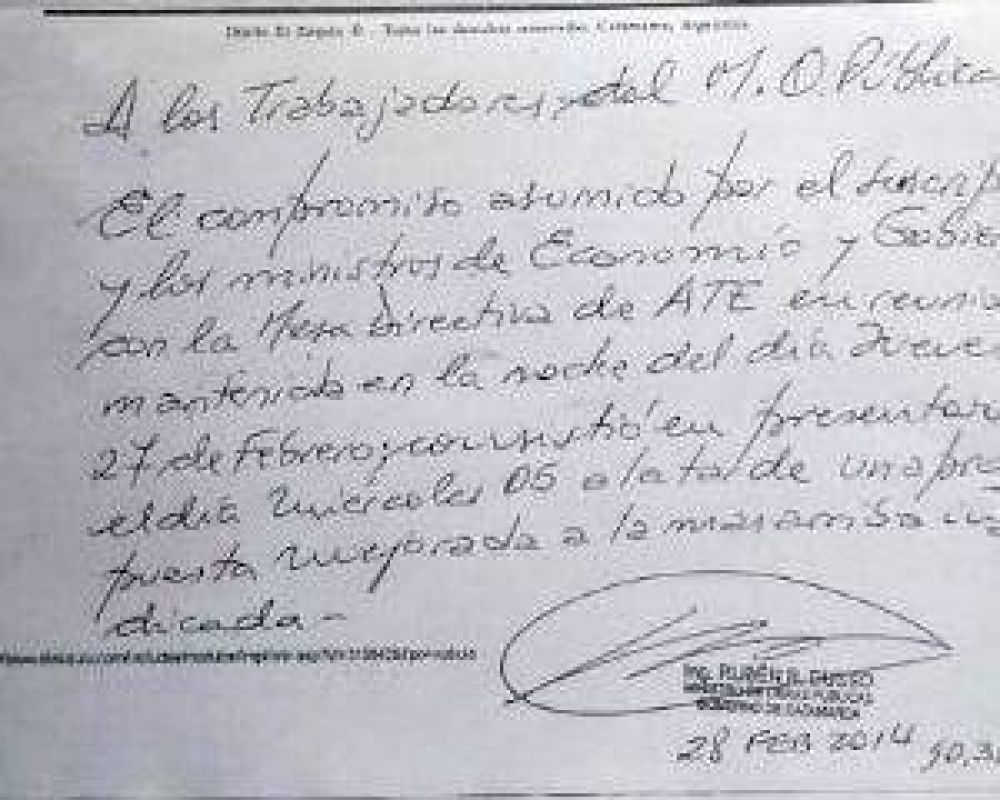 Todos los derechos reservados. Catamarca, Argentina
A los Trabajadores del M. O. Pública
El compromiso asumido por el suscrip
y los ministros de Economía y Gobie
con la Mesa Directiva de ATE en reunió
mantenida en la noche del día Jueve
27 de Febrero; consistió en presentar
el día Miércoles 05 a la tarde una pro
puesta mejorada a la misma arriba in
dicada -
Ing. RUBÉN R. DUSSO
GOBIERNO DE CATAMARCA
28 FEB 2014